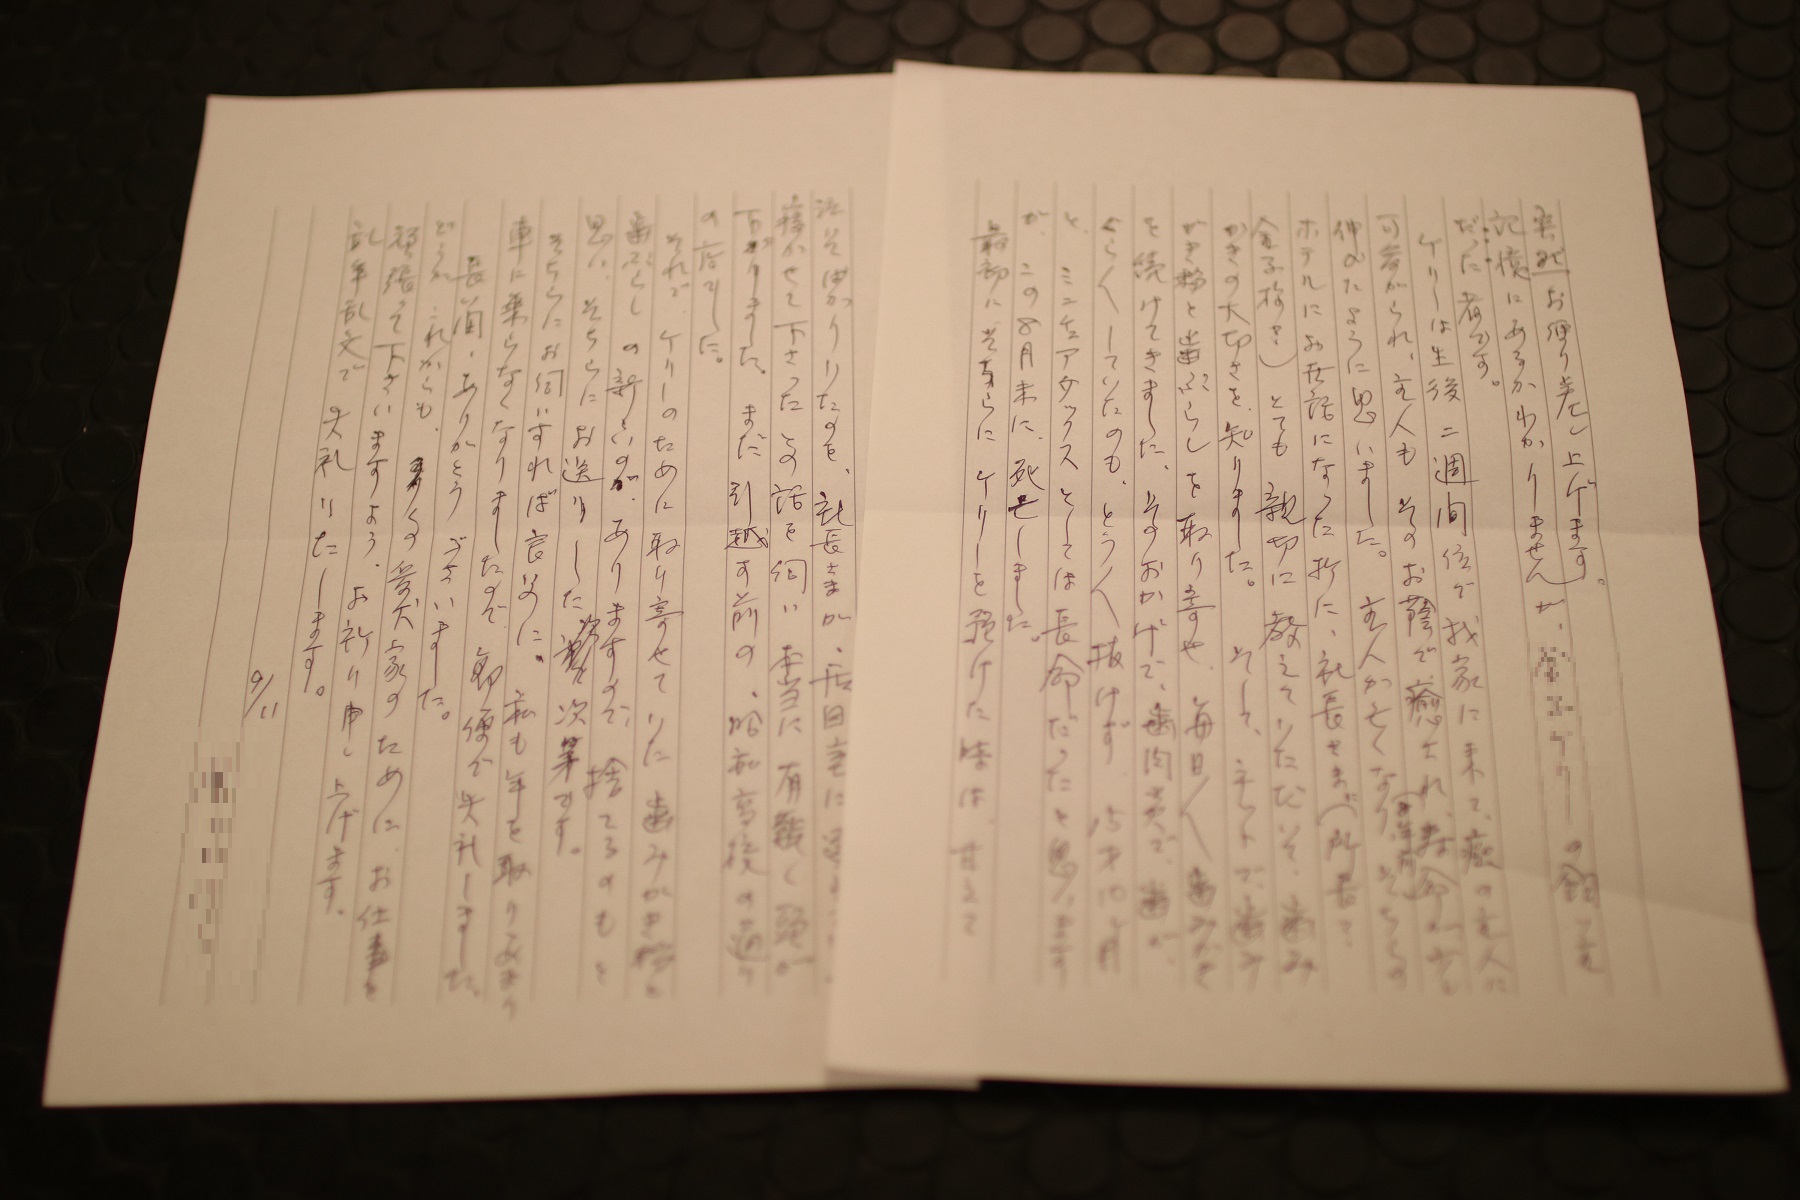 突然お便り差し上げます。
記憶にあるかわかりませんが、の飼主
だった者です。
ケリーは生後二週間位で我家に来て、癌の主人に
可愛がられ、主人も そのお蔭で癒され、寿命が
伸びたように思いました。主人が亡くなり、そちらの
ホテルにお世話になった折に、社長さま(所長?、
金子様?) とても親切に教えていただいて、歯み
がきの大切さを知りました。そして、ネットで、歯み
がき粉と歯ブラシを取り寄せ、毎日〱歯みがき
を続けてきました。そのおかげで、歯肉炎で、歯が、
ぐらぐらしていたのも、とうとう抜けず、15才10ヶ月
と、ミニチュアダックスとしては長命だったと思います
が、この8月末に、死亡しました。
最初に、そちらにケリーを預けた時は、甘えて
泣いてばかりいたのを、社長さまが、
寝かせて下さったとの話を伺い 本当に有難く頭が
下がりました。まだ引越す前の、昭和高校の通り
の店でした。
それで、ケリーのために取り寄せていた歯みがき粉と
歯ブラシの新しいのが、ありますので、捨てるのもと
思い、そちらにお送りした次第です。
そちらにお伺いすれば良いのに、私も年を取りあまり
車に乗らなくなりましたので、郵便で失礼しました。
長い間、ありがとうございました。
どうか、これからも、愛犬家のために、お仕事を
頑張って下さいますよう、お祈り申し上げます。
乱筆乱文で 失礼いたします。
9/11